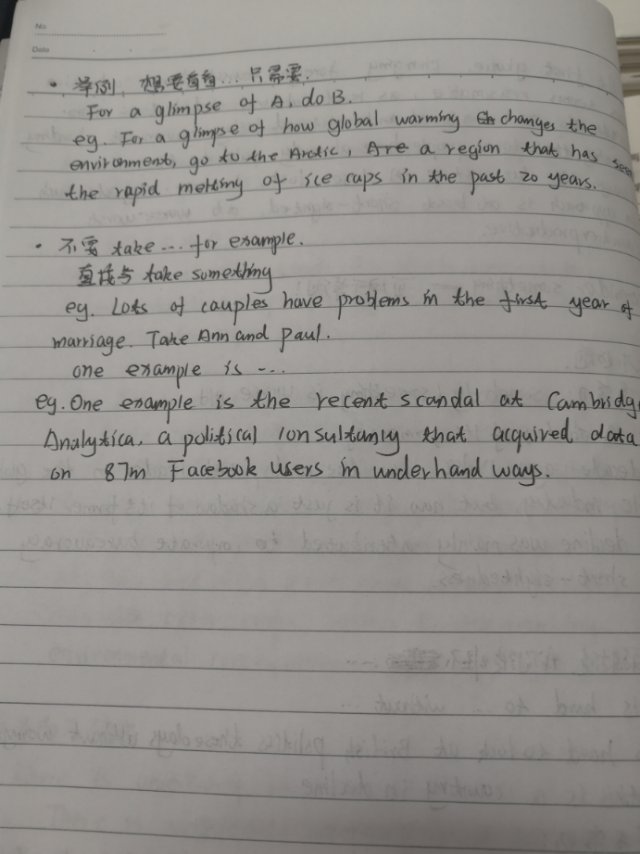 No.
Date
• 举例,想要看看… 只需要.
For a glimpse of A, do B.
eg. For a glimpse of how global warming changes the
environment, go to the Arctic, Are a region that has seen
the rapid melting of ice caps in the past 20 years.
• 不要 take … for example.
直接写 take something
eg. Lots of couples have problems in the first year of
marriage. Take Ann and Paul.
one example is …
eg. One example is the recent scandal at Cambridge
Analytica, a political consultancy that acquired data
on 87m Facebook users in underhand ways.